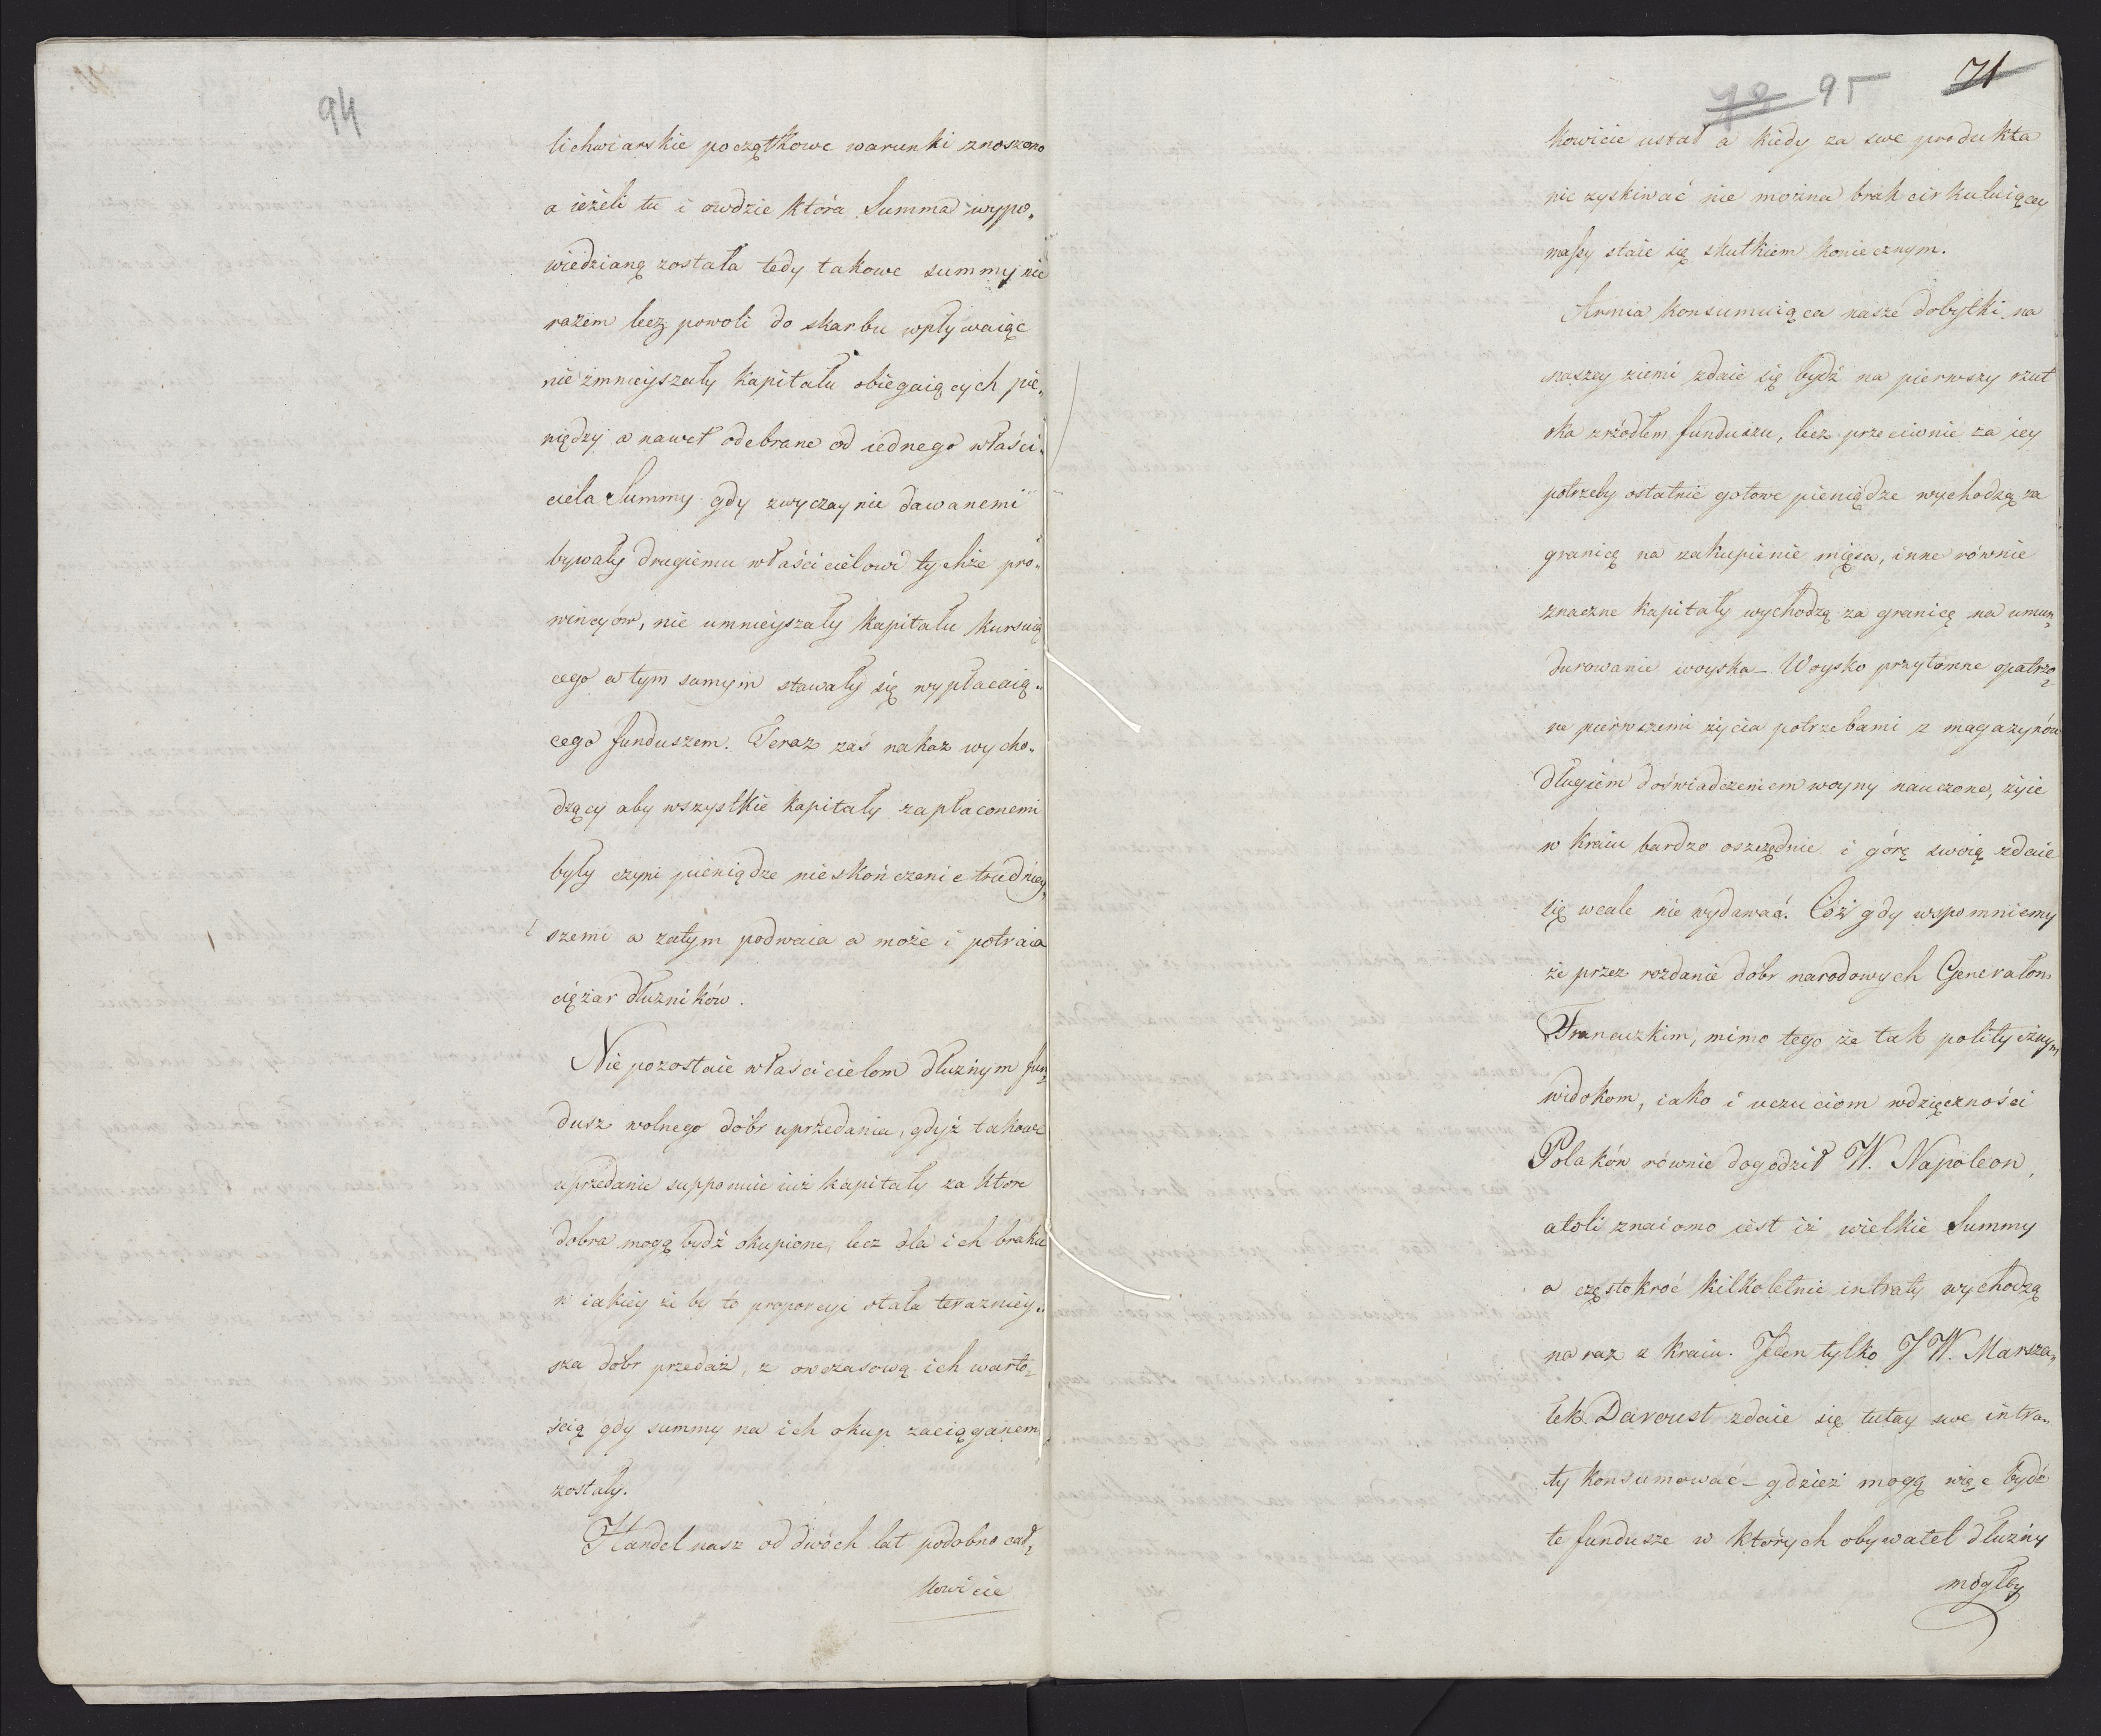 94
lichwiarskie początkowe warunki znoszono
a ieżeli tu i owdzie która Summa wypo„
wiedzianą została tedy takowe summy nie
razem lecz powoli do skarbu wpływaiąc
nie zmnieyszały kapitału obiegaiących pie„
niędzy a nawet odebrane od iednego właści„
ciela Summy gdy zwyczaynie dawanemi
bywały drugiemu właścicielowi tychże pro„
wincyów, nie umnieyszały kapitału kursuią
cego a tym samym stawały się wypłacaią„
cego funduszem. Teraz zaś nakaz wycho„
dzący aby wszystkie kapitały zapłaconemi
były czyni pieniądze nieskończenie trudniey„
szemi a zatym podwaia a może i potraia
ciężar dłużników.
Nie pozostaie właścicielom dłużnym fun„
dusz wolnego dóbr uprzedania, gdyż takowe
uprzedanie supponuie iuż kapitały za które
dobra mogą bydź okupione, lecz dla ich braku
w iakiey że by to proporcyi stała teraźniey„
sza dóbr przedaż, z owczasową ich warto„
ścią gdy summy na ich okup zaciąganemi
zostały.
Handel nasz od dwóch lat podobno cał„
kowicie
70 95 71
kowicie ustał a kiedy za swe produkta
nic zyskiwać nie można brak cirkuluiącey
massy staie się skutkiem koniecznym.
Armia konsumuiąca nasze dobytki na
naszey ziemi zdaie się bydź na pierwszy rzut
oka źrzódłem funduszu, lecz przeciwnie za iey
potrzeby ostatnie gotowe pieniądze wychodzą za
granicę na zakupienie mięsa, inne równie
znaczne kapitały wychodzą za granicę na umun„
durowanie woyska – Woysko przytomne opatrzo„
ne pierwszemi życia potrzebami z magazynów
długiem doświadczeniem woyny nauczone, żyie
w kraiu bardzo oszczędnie i górę swoią zdaie
się wcale nie wydawać. Cóż gdy wspomniemy
że przez rozdanie dóbr narodowych Generałom
Francuzkim, mimo tego że tak politycznym
widokom, iako i uczuciom wdzięczności
Polaków równie dogodził W. Napoleon,
atoli znaiomo iest iż wielkie Summy
a częstokroć kilkoletnie intraty wychodzą
na raz z kraiu. Jeden tylko J W. Marsza„
łek Davoust zdaie się tutay swe intra„
ty konsumować – gdzież mogą więc bydź
te fundusze w których obywatel dłużny
mógłby